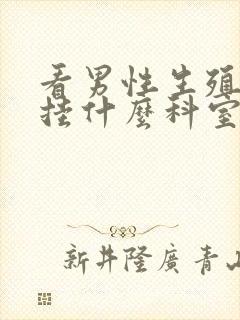 看男性生殖
挂什麼科室
新井隆廣 青山